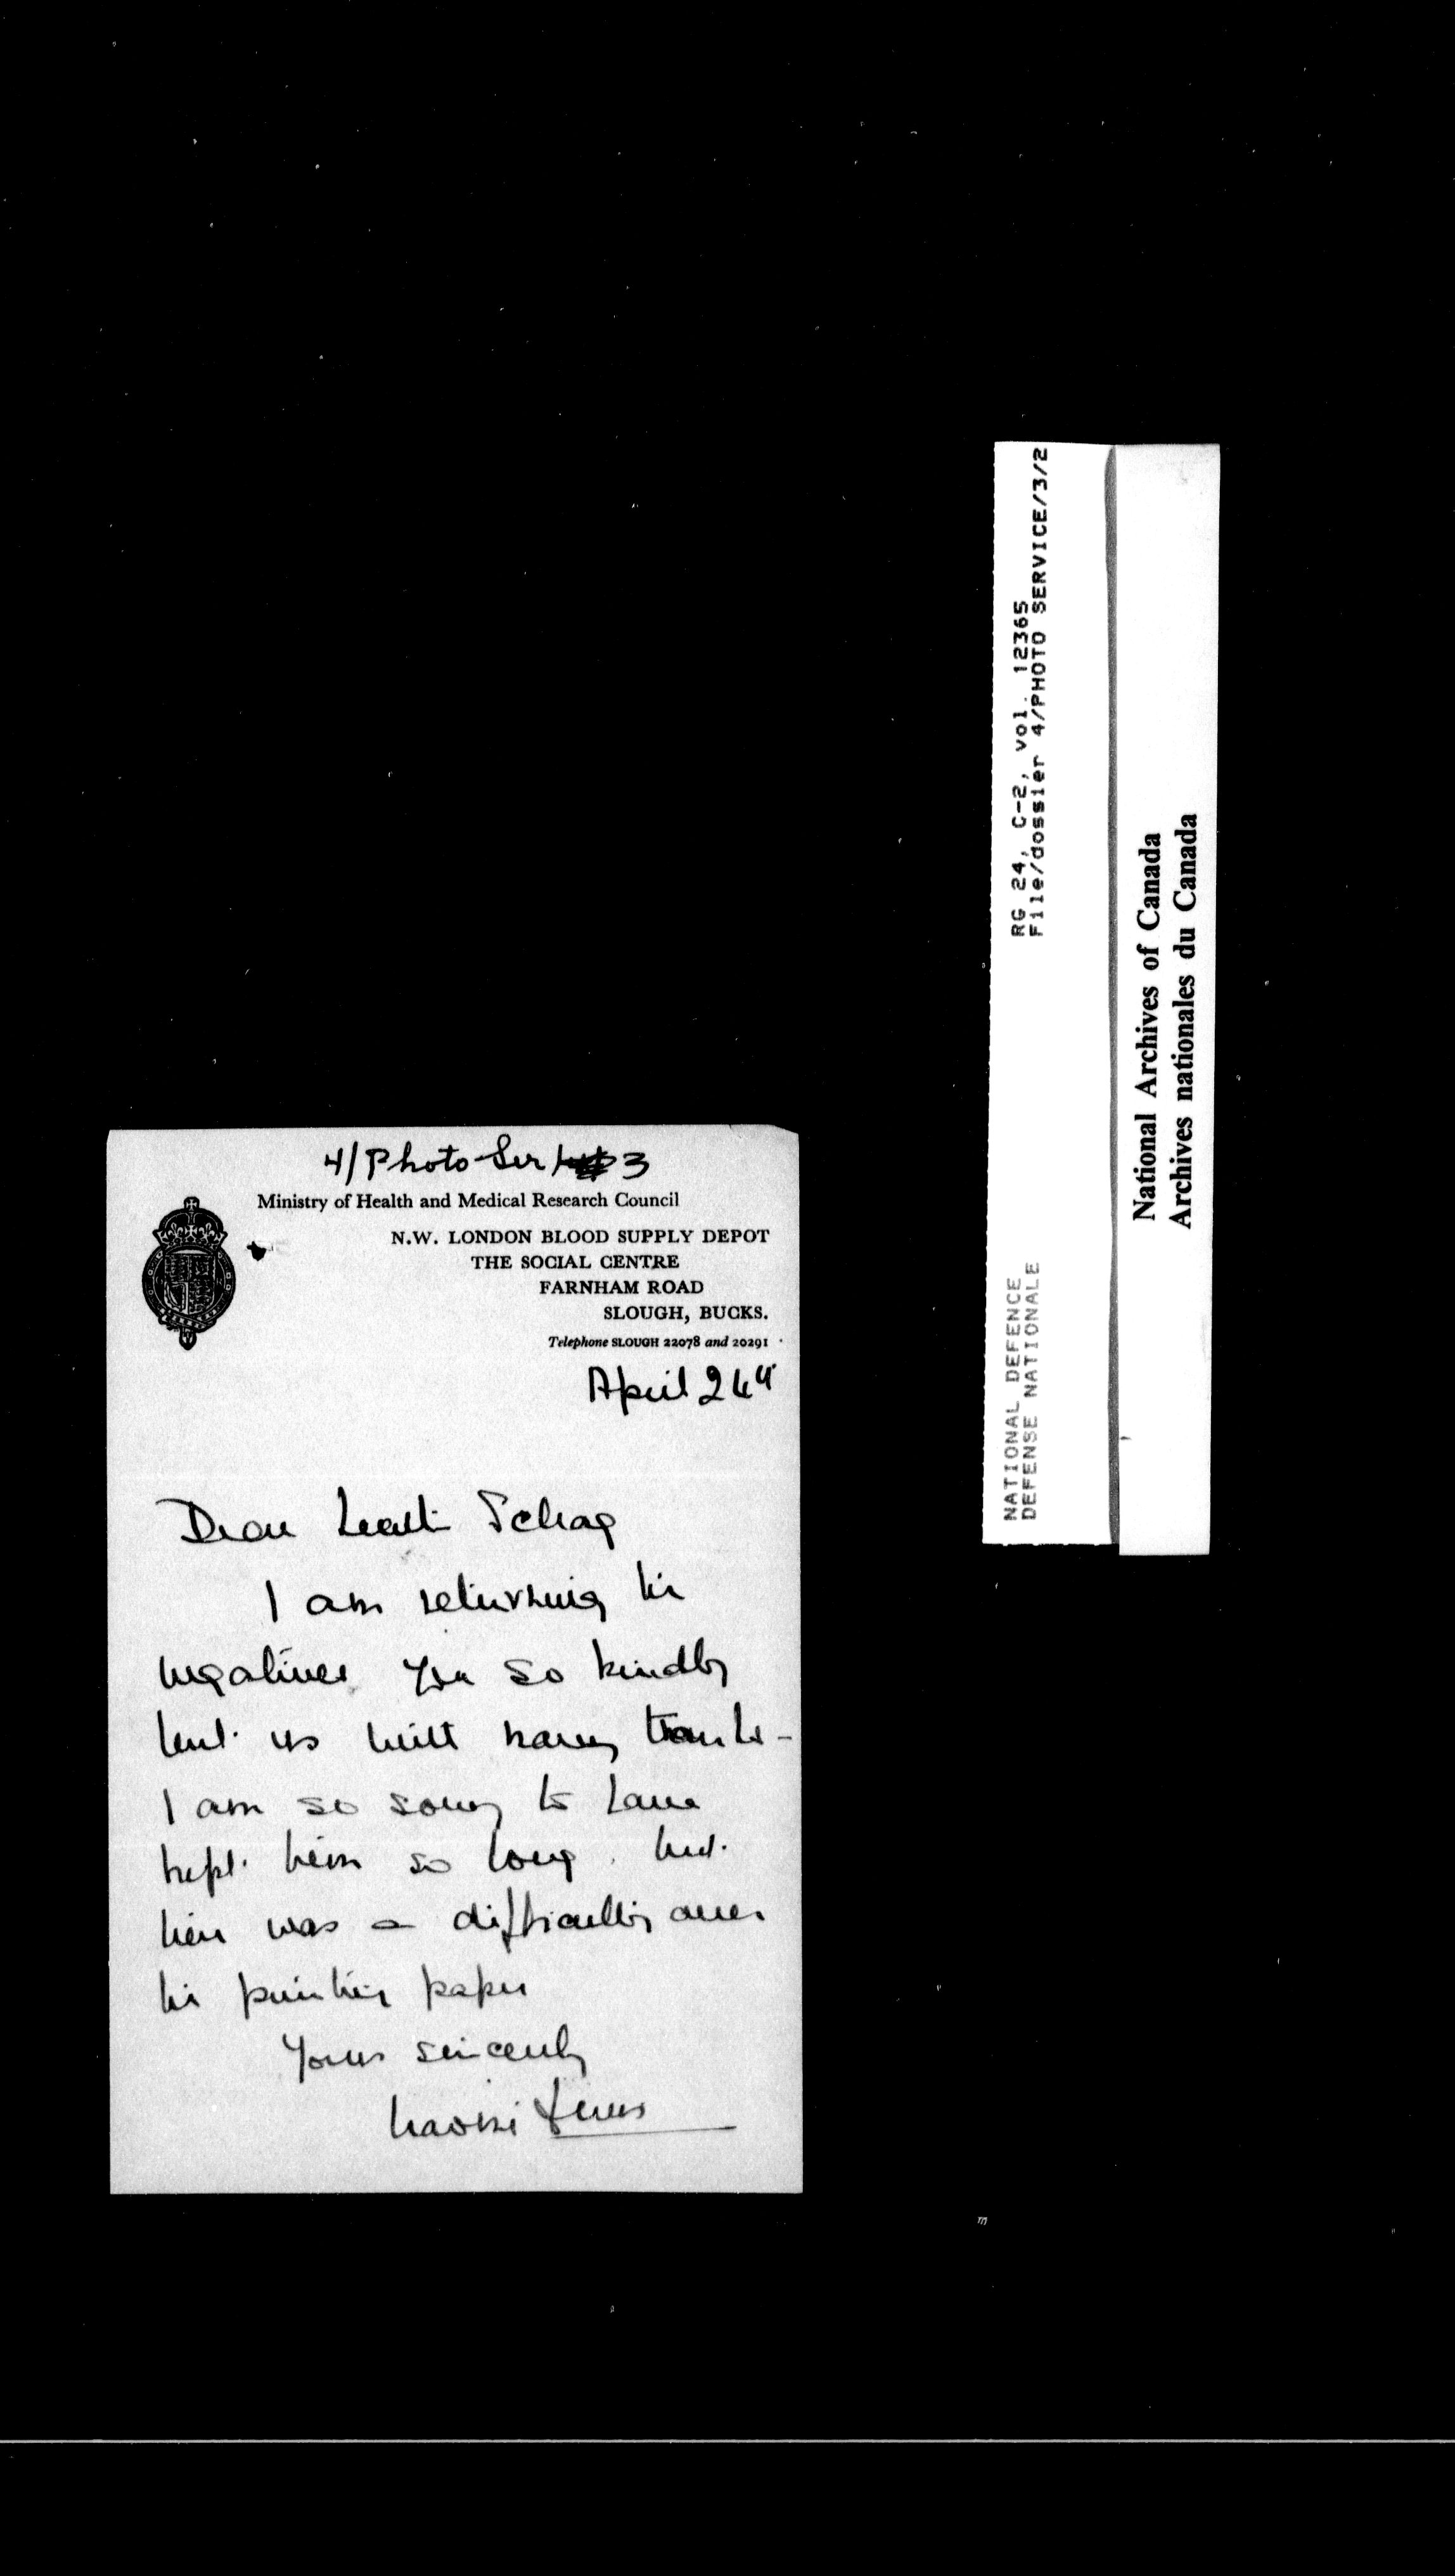 4/Photo Ser/3
Ministry of Health and Medical Research Council
N.W. LONDON BLOOD SUPPLY DEPOT
THE SOCIAL CENTRE
FARNHAM ROAD
SLOUGH, BUCKS.
Telephone SLOUGH 22078 and 20291
April 24th
Dear
I am returning the
negatives you so kindly
lent us with many thanks -
I am so sorry to have
kept them so long, but
there was a difficulty over
the printing paper
Yours sincerely
Naomi
RG 24, C-2, vol. 12365
File/dossier 4/PHOTO SERVICE/3/2
NATIONAL DEFENCE
DEFENSE NATIONALE
National Archives of Canada
Archives nationales du Canada